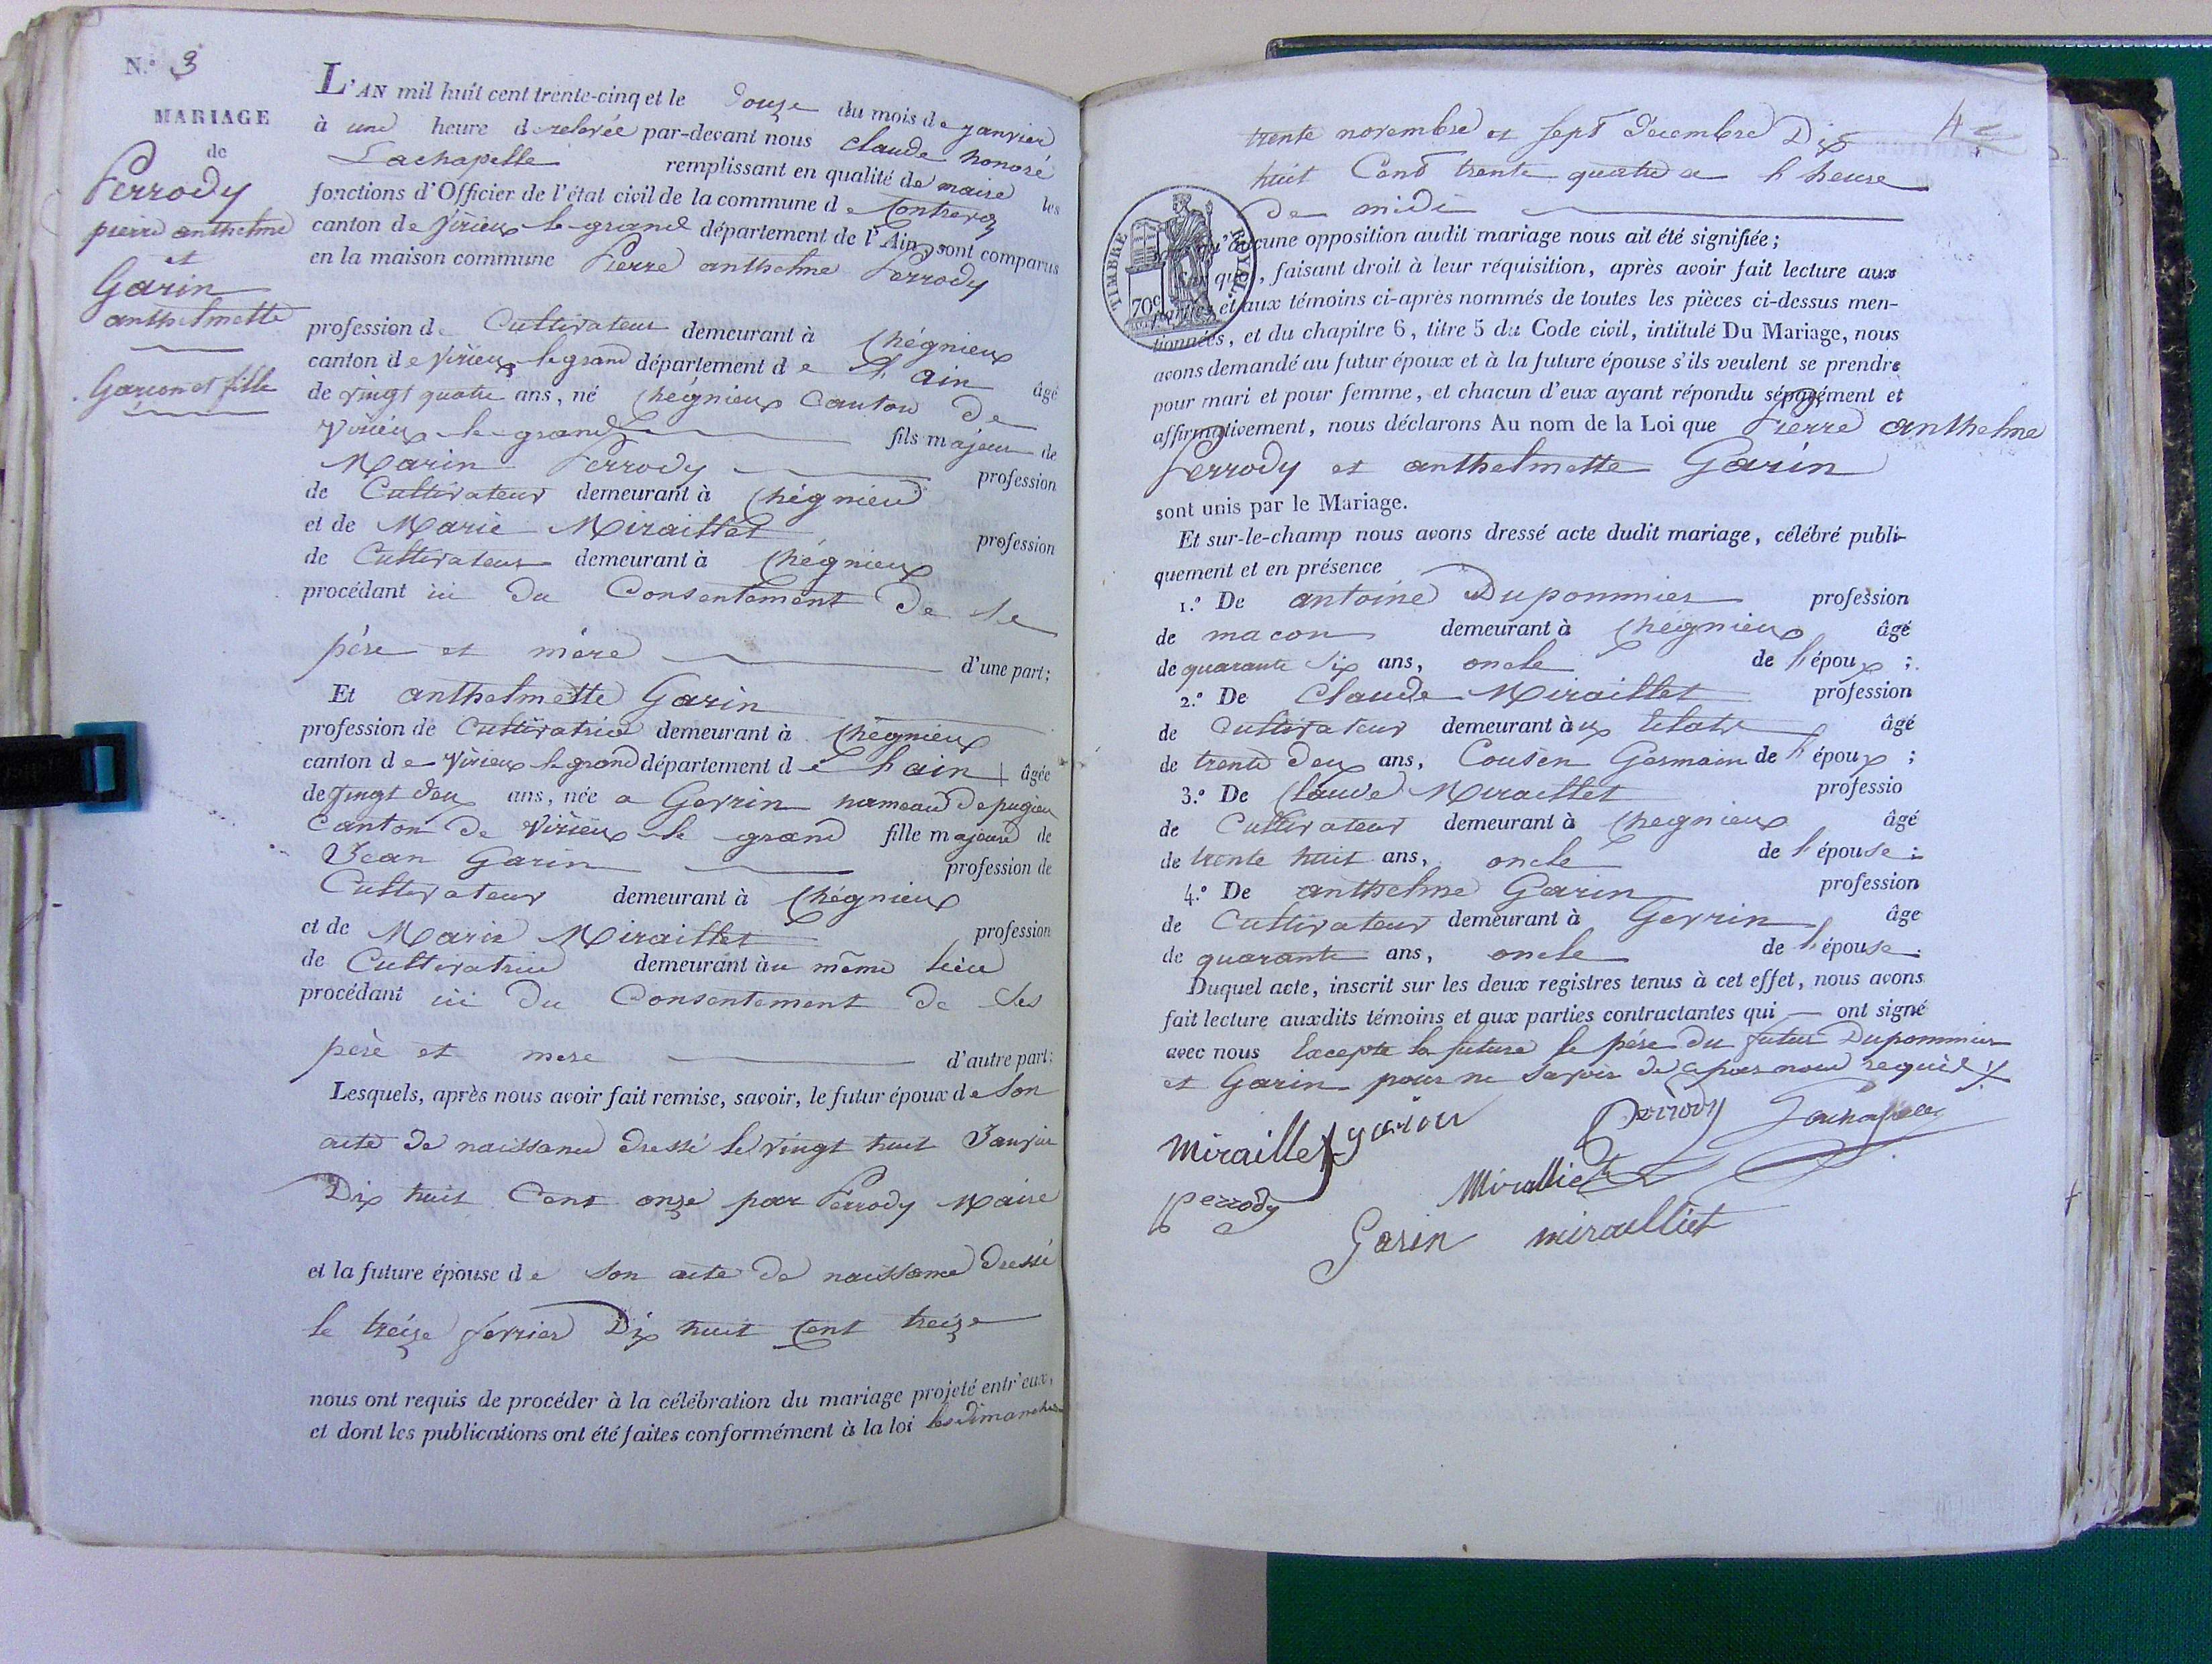 N.° 3
MARIAGE
de
Perrody
pierre anthelme
et
Garin
anthelmette
Garcon et fille
L'AN mil huit cent trente-cinq et le Douze du mois de janvier
à une heure d relevée par-devant nous claude honoré
Lachapelle remplissant en qualité de maire les
fonctions d'Officier de l'état civil de la commune de Contrevoz
canton de Virieux le grand département de l'Ain, sont comparus
en la maison commune Pierre anthelme Perrody
profession de Cultivateur demeurant à Chégnieux
canton de Virieux le grand département de l'ain âgé
de vingt quatre ans, né Chégnieux Canton De
Virieux le grand fils majeur de
Marin Perrody profession
de Cultivateur demeurant à Chégnieu
et de Marie Miraillet profession
de Cultivateur demeurant à Chégnieux
procédant ici Du Consentement De Se
père et mère d'une part;
Et anthelmette Garin
profession de Cultivatrice demeurant à Chégnieux
canton de Virieux le grand département de l'ain âgée
de vingt deux ans, née a Gevrin hameau De pugieu
Canton De Virieux le grand fille majeure de
Jean Garin profession de
Cultivateur demeurant à Chégnieux
et de Marie Miraillet profession
de Cultivatrice demeurant àu même lieu
procédant ici Du Consentement De Ses
père et mere d'autre part;
Lesquels, après nous avoir fait remise, savoir, le futur époux de Son
acte De naissance Dressé le vingt huit Janvier
Dix huit Cent onze par Perrody Maire
et la future épouse de Son acte De naissance Dressé
le treize fevrier Dix huit Cent treize
nous ont requis de procéder à la célébration du mariage projeté entr'eux,
et dont les publications ont été faites conformément à la loi les Dimanches
4
trente novembre et Sept Décembre Dix
huit Cent trente quatre a l'heure
De midi
TIMBRE ROYAL
70c
qu'aucune opposition audit mariage nous ait été signifiée;
que, faisant droit à leur réquisition, après avoir fait lecture aux
parties et aux témoins ci-après nommés de toutes les pièces ci-dessus men-
tionnées, et du chapitre 6, titre 5 du Code civil, intitulé Du Mariage, nous
avons demandé au futur époux et à la future épouse s'ils veulent se prendre
pour mari et pour femme, et chacun d'eux ayant répondu séparément et
affirmativement, nous déclarons Au nom de la Loi que Pierre anthelme
Perrody et anthelmette Garin
sont unis par le Mariage.
Et sur-le-champ nous avons dressé acte dudit mariage, célébré publi-
quement et en présence
1.° De antoine Dupommier profession
de macon demeurant à Chégnieux âgé
de quarante Six ans, oncle de l'époux;
2.° De Claude Miraillet profession
de Cultivateur demeurant àux âgé
de trente Deux ans, Cousin Germain de l'époux;
3.° De Claude Miraillet professio
de Cultivateur demeurant à Chegnieux âgé
de trente huit ans, oncle de l'épouse;
4.° De anthelme Garin profession
de Cultivateur demeurant à Gevrin âge
de quarante ans, oncle de l'épouse.
Duquel acte, inscrit sur les deux registres tenus à cet effet, nous avons
fait lecture auxdits témoins et aux parties contractantes qui — ont signé
avec nous Excepte la future le père Du futur Dupommier
et Garin pour ne Savoir De ce par nous requis
Miraillet garin Perrody Lachapelle
perrody Miralliet
Garin miralliet